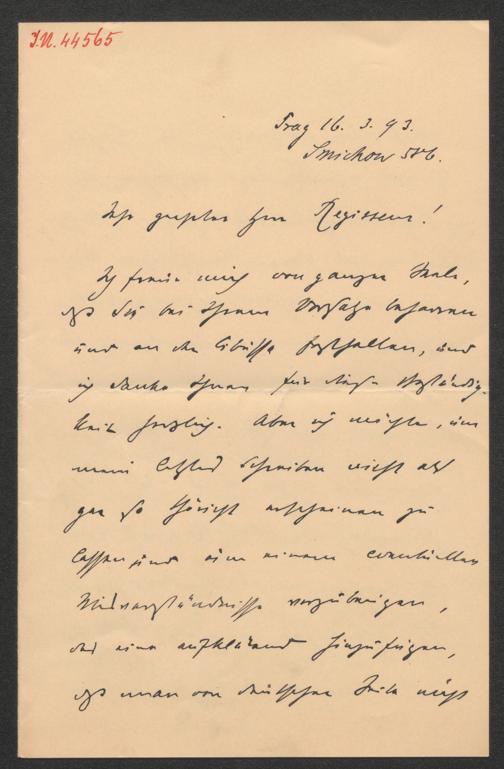 I.N. 44565
Prag 16. 3. 93.
Smichow 586.
Sehr geehrter Herr Regisseur!
Ich freue mich von ganzer Seele,
daß Sie bei Ihrem Vorsatze beharren
und an der Libussa festhalten, und
ich danke Ihnen für diese Beständig-
keit herzlich. Aber ich möchte, um
mein letztes Schreiben nicht als
gar so thöricht erscheinen zu
lassen und um einem eventuellen
Misverständnisse vorzubeugen,
das eine aufklärend hinzufügen,
daß man von deutscher Seite nicht